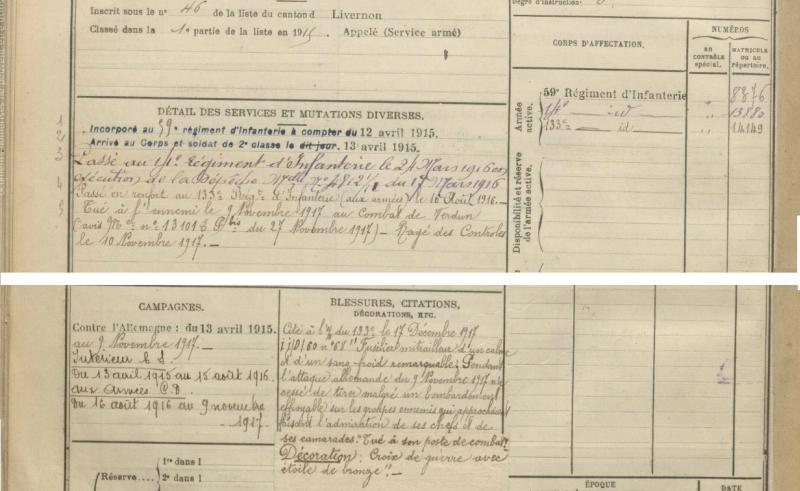 Degré d'instruction:
Inscrit sous le n° 46 de la liste du canton d Livernon
Classé dans la 1e partie de la liste en 1915. Appelé (Service armé)
CORPS D'AFFECTATION.
NUMÉROS
AU CONTRÔLE spécial.
MATRICULE ou au répertoire.
Armée active.
59e Régiment d'Infanterie " 8876
14e id " 13880
133e id " 14149
Disponibilité et réserve de l'armée active.
DÉTAIL DES SERVICES ET MUTATIONS DIVERSES.
1
2
3
4
5
Incorporé au 59e régiment d'Infanterie à compter du 12 avril 1915.
Arrivé au Corps et soldat de 2e classe le dit jour. 13 avril 1915.
Passé au 14e Régiment d'Infanterie le 24 Mars 1916 en
exécution de la Dépêche du 17 Mars 1916
Passé en renfort au 133e Régt d'Infanterie (aux armées) le 16 Août 1916.—
Tué à l'ennemi le 9 Novembre 1917 au Combat de Verdun
(avis Mel n° 13101 du 27 Novembre 1917) — Rayé des Contrôles
le 10 Novembre 1917.—
CAMPAGNES.
Contre l'Allemagne : du 13 avril 1915.
au 9 Novembre 1917.—
Intérieur C.S.
Du 13 avril 1915 au 15 août 1916.
aux Armées C.D.
Du 16 août 1916 au 9 novembre
1917
Réserve....
1re dans l
2e dans l
BLESSURES, CITATIONS,
DÉCORATIONS, ETC.
Cité à l'O/ du 133e le 17 Décembre 1917
n° 68 " Fusilier mitrailleur d'un calme
et d'un sang-froid remarquable; Pendant
l'attaque allemande du 9 Novembre 1917 n'a
cessé de tirer malgré un bombardement
effroyable sur les groupes ennemis qui approchaient
faisant l'admiration de ses chefs et de
ses camarades. Tué à son poste de combat"
Décoration : Croix de guerre avec
étoile de bronze".—
ÉPOQUE
DATE